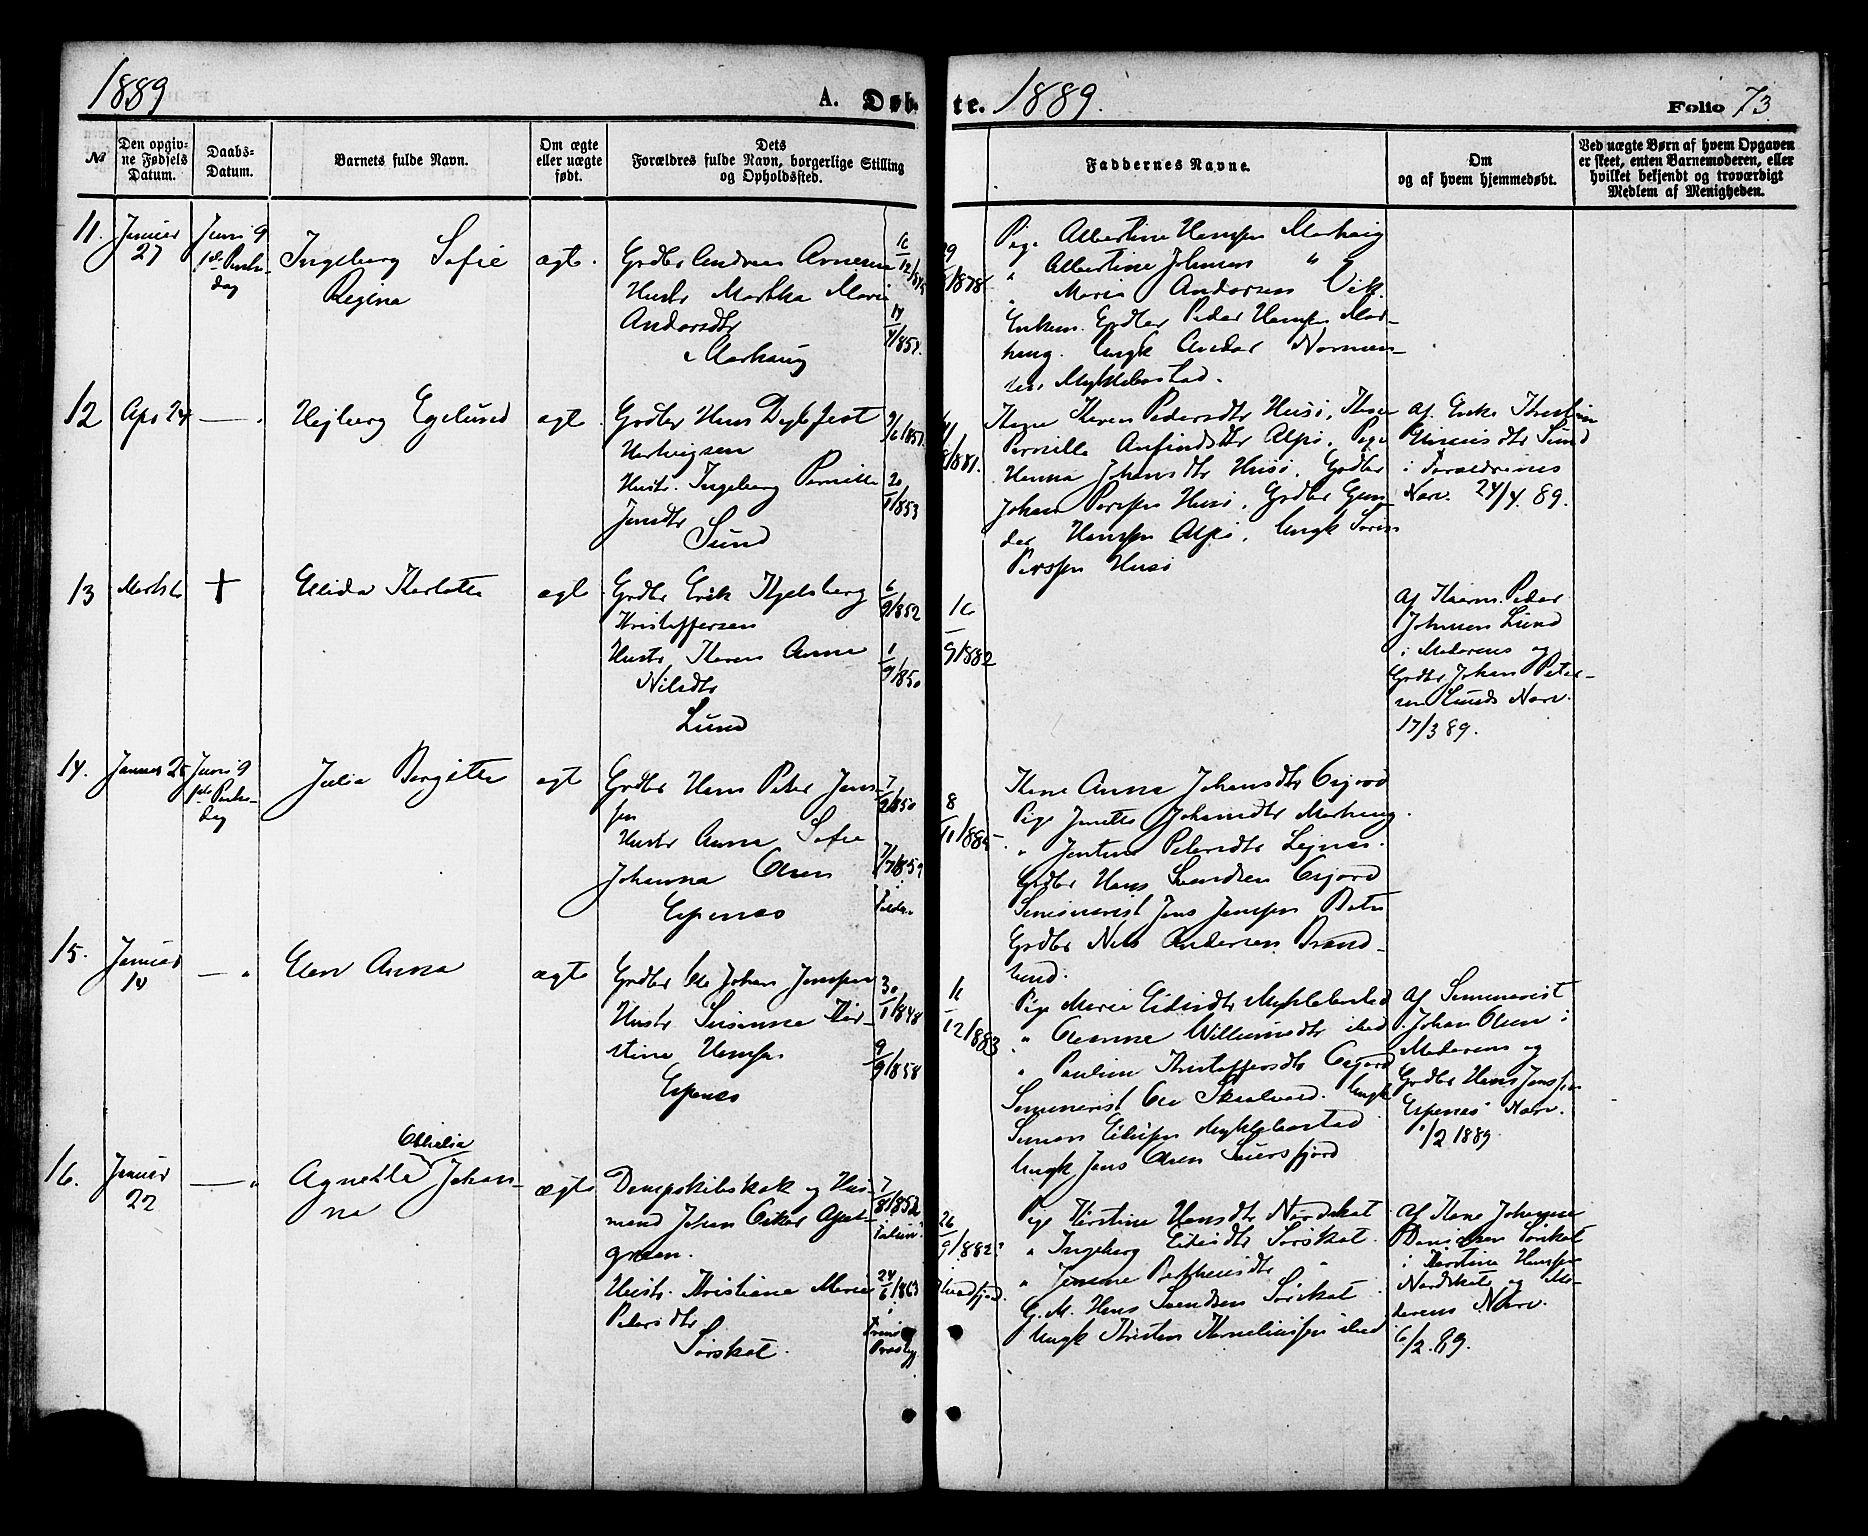 1889
A. Døb-
te. 1889.
Folio 73.
№
Den opgiv-
ne Fødsels
Datum.
Daabs-
Datum.
Barnets fulde Navn.
Om ægte
eller uægte
født.
Dets
Forældres fulde Navn, borgerlige Stilling
og Opholdssted.
Faddernes Navne.
Om
og af hvem hjemmedøbt.
Ved uægte Børn af hvem Opgaven
er skeet, enten Barnemoderen, eller
hvilket bekjendt og troværdigt
Medlem af Menigheden.
11.
Januar
27
Juni 9
1ste Pintse-
dag
Ingeborg Sofie
Regina
ægte.
Grdbr Andreas Arnesen
Hustr Martha Marie
Andersdtr
Marhaug
16/12/
14/4/851.
9/ /1878
Pige Albertine Hansen Marhaug
" Albertine Johnsen "
" Maria Andersen Vik.
Enkem. Grdbr Peder Hansen Mar-
haug. Ungk Andor Norman-
sen Myklebostad.
12
Apr 24
— "
Hejberg Egelund
ægte
Grdbr Hans Dybfest
Hartvigsen
Hustr. Ingeborg Pernille
Jensdtr
Sund
9/6/851.
20/1/853
11/8/881.
Kone Karen Pedersdtr Husø, Kone
Pernille Anfindsdtr Alpø, Pige
Hanna Johansdtr Husø, Grdbr
Johan Persen Husø, Grdbr Gun-
der Hansen Alpø, Ungk Søren
Persen Husø
af Enke
Sund
i Foreldrenes
Nærv. 24/4. 89.
13
Marts
+
Elida Karlotte
ægte
Grdbr Erik Kjelsberg
Kristoffersen
Hustr. Karen Anna
Nilsdtr
Lund
6/9/852
1/9/850
16/9/882
Af Kaarm. Peder
Johnsen Lund
i Moderens og
Grdbr Johan Peter-
sen Lunds Nærv.
17/3 89.
14.
Januar 25
Juni 9
1ste Pintse-
dag
Julia Bergitte
ægte
Grdbr Hans Peter Jens-
sen
Hustr Anna Sofie
Johanna Olsen
Espenes
7/ /850
7/7/859
8/11/885
Kone Anna Johansdtr Osjord
Pige Janette Johansdtr Marhaug.
" Jentine Petersdtr Lejnes.
Grdbr Hans Svendsen Osjord
Seminarist Jens Jensen Botn
Grdbr Nils Andersen Brand-
sund.
15.
Januar
14
— "
Elen Anna
ægte
Grdbr Ole Johan Jensen
Hustr Susanna Kir-
stine Hansen
Espenes
30/1/848
9/9/858
16/12/883
Pige Marie Eidisdtr Myklebostad
" Oleanna Williumsdtr ibid
" Pauline Kristoffersdtr Osjord
Seminarist Ole Skaalvard. Ungk
Simon Eidissen Myklebostad
Ungk Jens Olsen Svartfjord
Af Seminarist
Johan Olsen i
Moderens og
Grdbr Hans Jensen
Espenes' Nærv.
/2 1889.
16.
Januar
22
— "
Othelia
Agnette Johan-
na
ægte
Dampskibskok og Hus-
mand Johan Oskar Apel-
green.
Hustr. Kristiane Marie
Pedersdtr
Sørskot.
7/8/852
24/6/863
26/9/882
Pige Kirstine Hansdtr Nordskot
" Ingeborg Eidisdtr Sørskot
" Jensine Berthensdtr "
G. M. Hans Svendsen Sørskot
Ungk Kristen Korneliussen ibid
Af Kone Johanna
Danielsen Sørskot
i Kirstine Hansen
Nordskot og Mo-
derens Nærv.
6/2. 89.